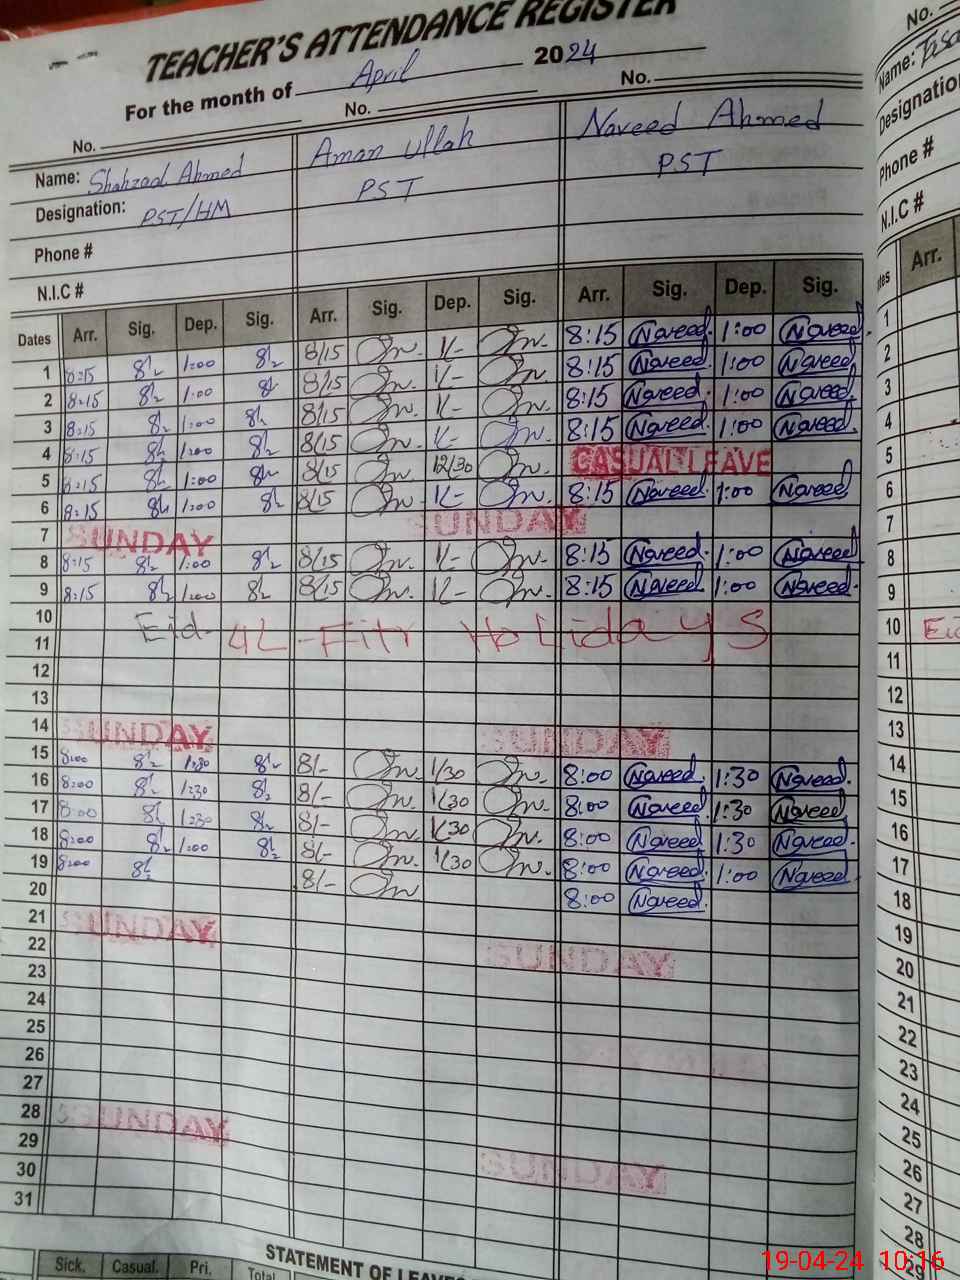 TEACHER'S ATTENDANCE REGISTER
For the month of April 2024
No. No. No.
Name: Shahzad Ahmed Aman Ullah Naveed Ahmed
Designation: PST/HM PST PST
Phone #
N.I.C #
Dates Arr. Sig. Dep. Sig. Arr. Sig. Dep. Sig. Arr. Sig. Dep. Sig.
1 8:15 1:00 8/15 1/- 8:15 Naveed 1:00 Naveed
2 8:15 1:00 8/15 1/- 8:15 Naveed 1:00 Naveed
3 8:15 1:00 8/15 1/- 8:15 Naveed 1:00 Naveed
4 8:15 1:00 8/15 1/- 8:15 Naveed 1:00 Naveed
5 8:15 1:00 8/15 12/30 CASUAL LEAVE
6 8:15 1:00 8/15 1/- 8:15 Naveed 1:00 Naveed
7 SUNDAY SUNDAY
8 8:15 1:00 8/15 1/- 8:15 Naveed 1:00 Naveed
9 8:15 1:00 8/15 1/- 8:15 Naveed 1:00 Naveed
10 Eid-ul-Fitr Holidays
11
12
13
14 SUNDAY SUNDAY
15 8:00 1:30 8/- 1/30 8:00 Naveed 1:30 Naveed
16 8:00 1:30 8/- 1/30 8:00 Naveed 1:30 Naveed
17 8:00 1:30 8/- 1/30 8:00 Naveed 1:30 Naveed
18 8:00 1:00 8/- 1/30 8:00 Naveed 1:00 Naveed
19 8:00 8/- 8:00 Naveed
20
21 SUNDAY
22 SUNDAY
23
24
25
26
27
28 SUNDAY
29 SUNDAY
30
31
STATEMENT OF LEAVES
Sick. Casual. Pri. Total
No.
Name:
Designation
Phone #
N.I.C #
Arr.
1
2
3
4
5
6
7
8
9
10
11
12
13
14
15
16
17
18
19
20
21
22
23
24
25
26
27
28
29
19-04-24 10:16